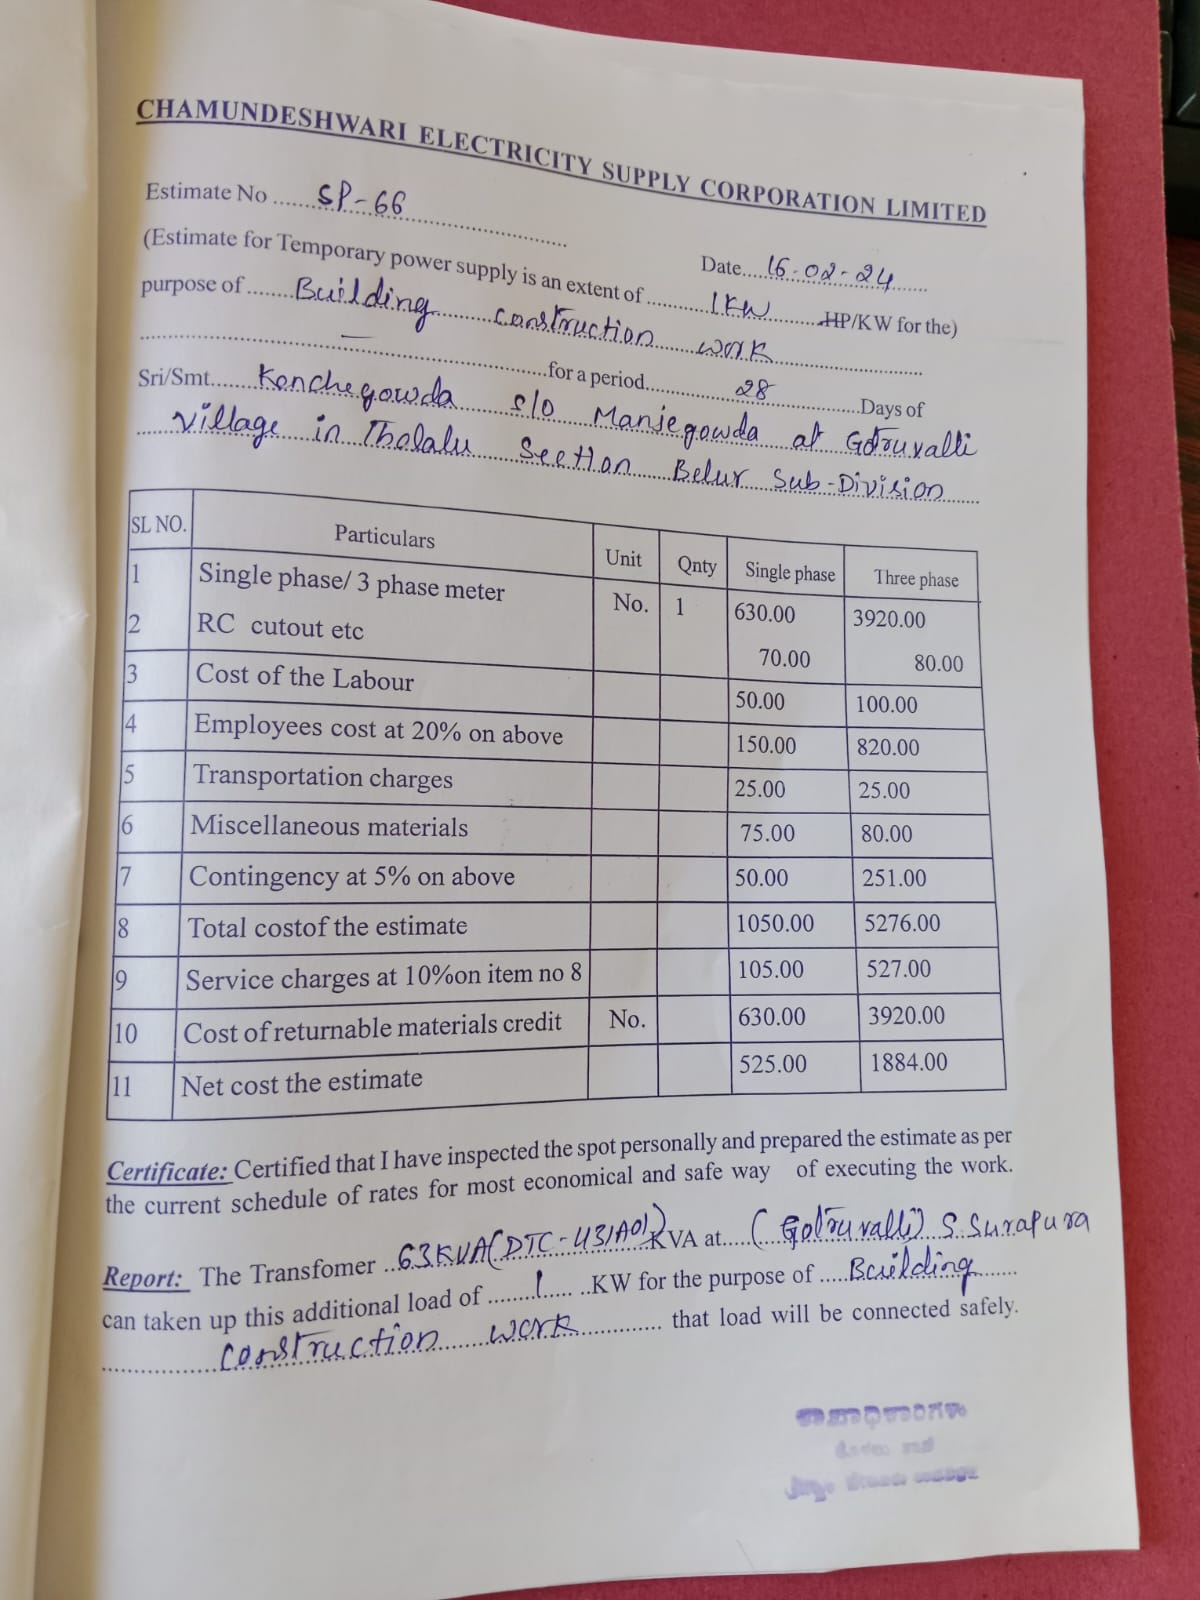 CHAMUNDESHWARI ELECTRICITY SUPPLY CORPORATION LIMITED
Estimate No ...... SP-66
Date.... 16-02-24
(Estimate for Temporary power supply is an extent of ........ 1KW ........ HP/KW for the)
purpose of ....... Building construction work
— .for a period... 28 .....Days of
Sri/Smt...... Kenchegowda s/o Manjegowda at Gotruvalli
village in Tholalu Section Belur Sub-Division
SL NO. Particulars Unit Qnty Single phase Three phase
1 Single phase/ 3 phase meter No. 1 630.00 3920.00
2 RC cutout etc 70.00 80.00
3 Cost of the Labour 50.00 100.00
4 Employees cost at 20% on above 150.00 820.00
5 Transportation charges 25.00 25.00
6 Miscellaneous materials 75.00 80.00
7 Contingency at 5% on above 50.00 251.00
8 Total costof the estimate 1050.00 5276.00
9 Service charges at 10%on item no 8 105.00 527.00
10 Cost of returnable materials credit No. 630.00 3920.00
11 Net cost the estimate 525.00 1884.00
Certificate: Certified that I have inspected the spot personally and prepared the estimate as per
the current schedule of rates for most economical and safe way of executing the work.
Report: The Transfomer .. 63KVA(DTC-431A01) KVA at.... (Gotruvalli) S.Surapura
can taken up this additional load of ....... 1 ..... ..KW for the purpose of ..... Building
construction work ............ that load will be connected safely.